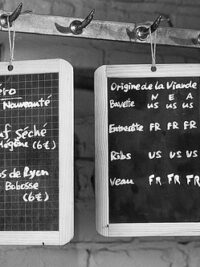 ero
Nouveauté
uf Séché
(6€)
os de Ryon
Bobosse
(6€)
Origine de la Viande
N E A
Bavette US US US
Entrecôte FR FR FR
Ribs US US US
Veau FR FR FR